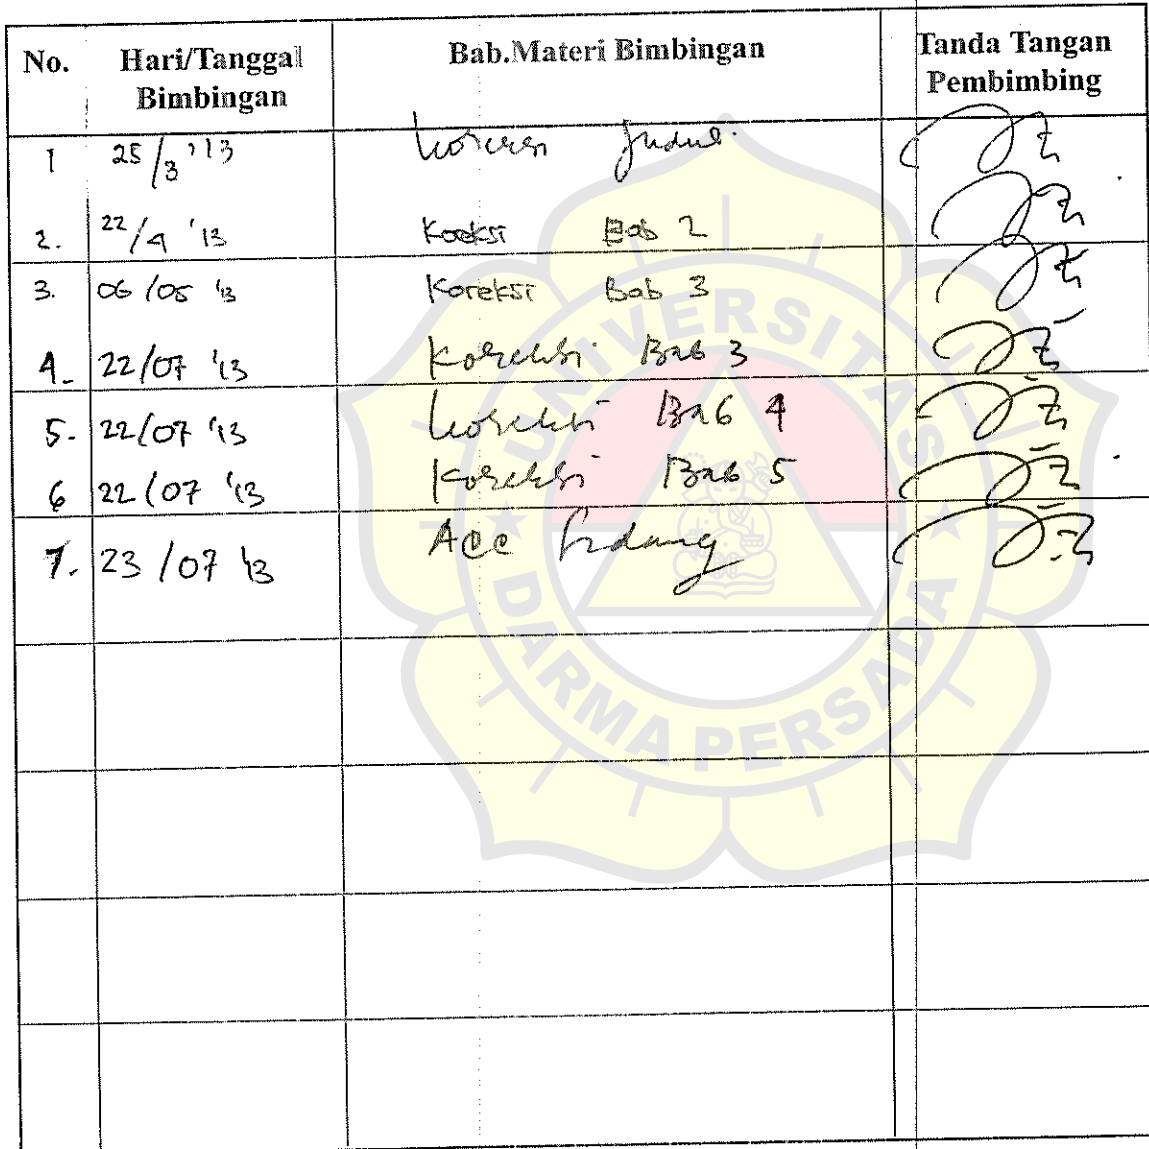 No. Hari/Tanggal Bimbingan Bab.Materi Bimbingan Tanda Tangan Pembimbing
1 25/3 '13 Koreksi Judul.
2. 22/4 '13 Koeksi Bab 2
3. 06/05 '13 Koreksi Bab 3
4. 22/07 '13 Koreksi Bab 3
5. 22/07 '13 Koreksi Bab 4
6 22/07 '13 Koreksi Bab 5
7. 23/07 '13 Acc Sidang
UNIVERSITAS
DARMA PERSADA